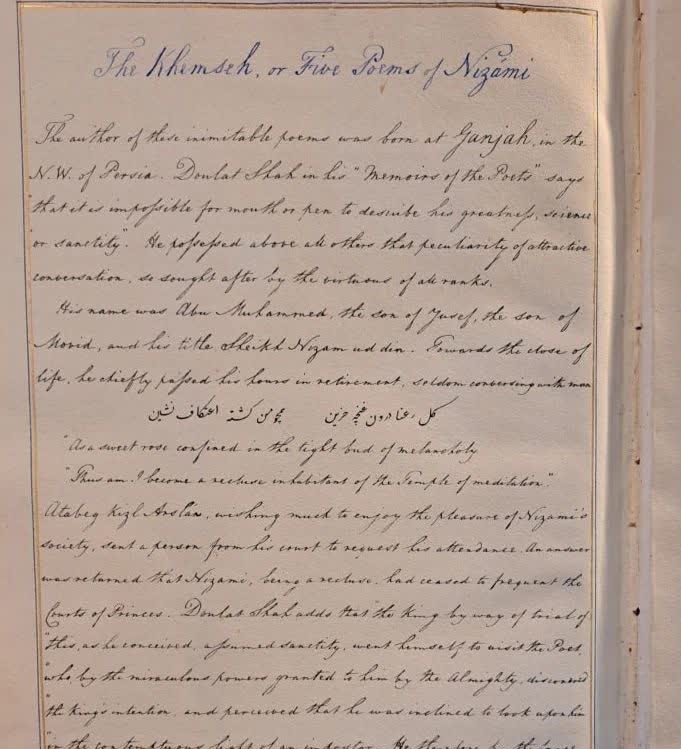 The Khemseh, or Five Poems of Nizámi
The author of these inimitable poems was born at Ganjah, in the
N.W. of Persia. Doulat Shah in his "Memoirs of the Poets" says
"that it is impossible for mouth or pen to describe his greatness, science
"or sanctity". He possessed above all others that peculiarity of attractive
conversation, so sought after by the virtuous of all ranks.
His name was Abu Muhammed, the son of Yusef, the son of
Movid, and his title Sheikh Nizam ud din. Towards the close of
life, he chiefly passed his hours in retirement, seldom conversing with man
گل رعنا درون غنچه حزین همچو من گشته اعتکاف نشین
"As a sweet rose confined in the tight bud of melancholy
"Thus am I become a recluse inhabitant of the Temple of meditation".
Atabeg Kizl Arslán, wishing much to enjoy the pleasure of Nizami's
society, sent a person from his court to request his attendance. An answer
was returned that Nizami, being a recluse, had ceased to frequent the
Courts of Princes. Doulat Shah adds that "the King by way of trial of
"this, as he conceived, assumed sanctity, went himself to visit the Poet,
"who, by the miraculous powers granted to him by the Almighty, discovered
"the king's intention, and perceived that he was inclined to look upon him
"in the contemptuous light of an impostor. He therefore